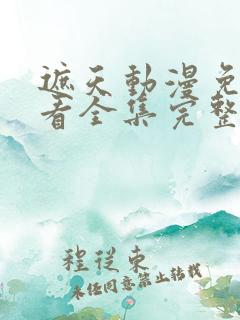 遮天動漫免
看全集完整
程從東
未经同意禁止转载